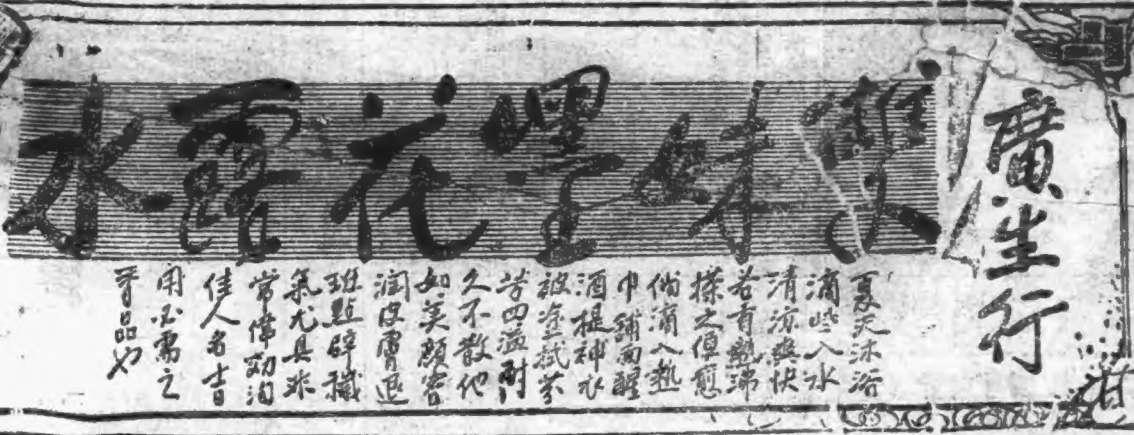 廣生行
雙妹嚜花露水
夏天沐浴
滴些入水
清涼爽快
若有熱沸
搽之便愈
倘滴入熱
巾鋪面醒
酒提神衣
被塗拭芬
芳四溢耐
久不散他
如美顏容
潤皮膚退
班點辟穢
氣尤具非
常偉効洵
佳人名士日
用必需之
品也